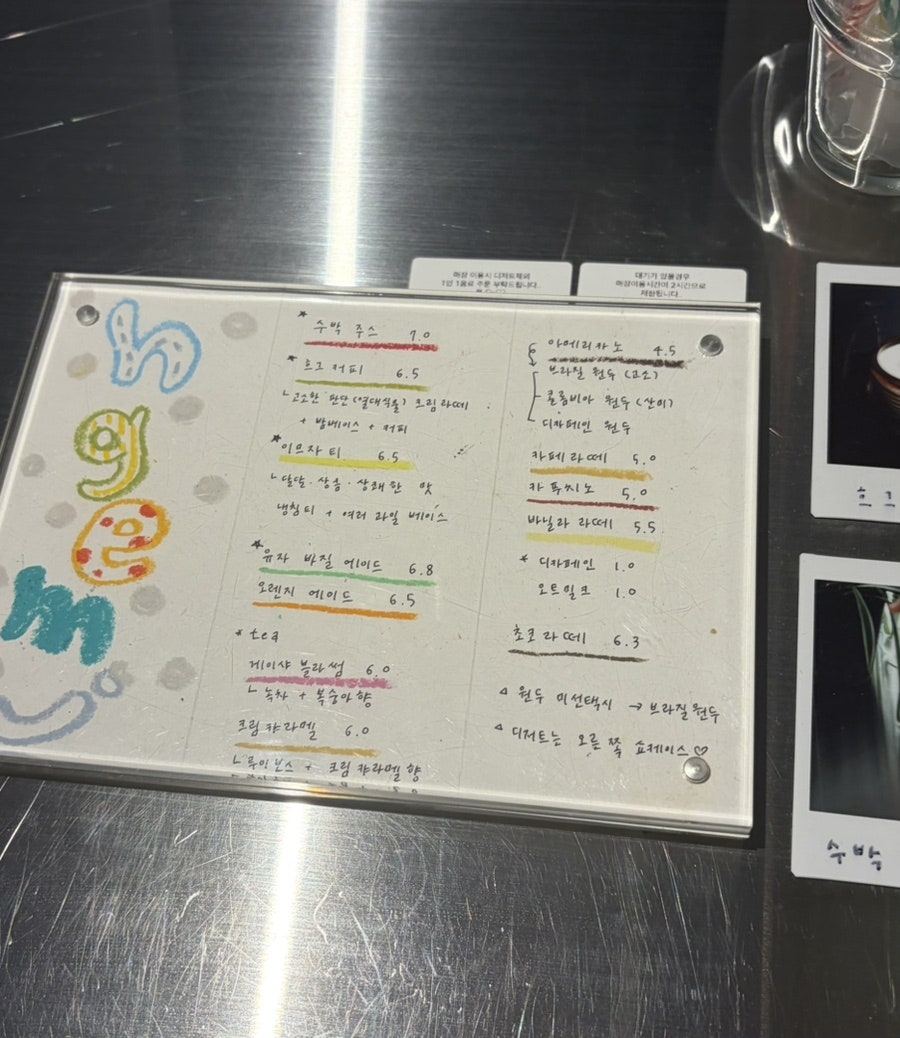 매장 이용시 디저트제외
1인 1음료 주문 부탁드립니다.
대기가 있을경우
매장이용시간이 2시간으로
제한됩니다.
h
g
e
m
* 수박 주스 7.0
* 흐그 커피 6.5
ㄴ고소한 판단(열대식물) 크림라떼
+ 밤베이스 + 커피
* 이므자 티 6.5
ㄴ달달·상큼·상쾌한 맛
냉침티 + 여러 과일 베이스
* 유자 바질 에이드 6.8
오렌지 에이드 6.5
* tea
게이샤 블라썸 6.0
ㄴ 녹차 + 복숭아향
크림 캬라멜 6.0
ㄴ루이보스 + 크림 캬라멜 향
아메리카노 4.5
브라질 원두 (고소)
콜롬비아 원두 (산미)
디카페인 원두
카페라떼 5.0
카푸치노 5.0
바닐라 라떼 5.5
* 디카페인 1.0
오트밀크 1.0
초코라떼 6.3
△ 원두 미선택시 → 브라질원두
△ 디저트는 오른쪽 쇼케이스♡
흐그
수박